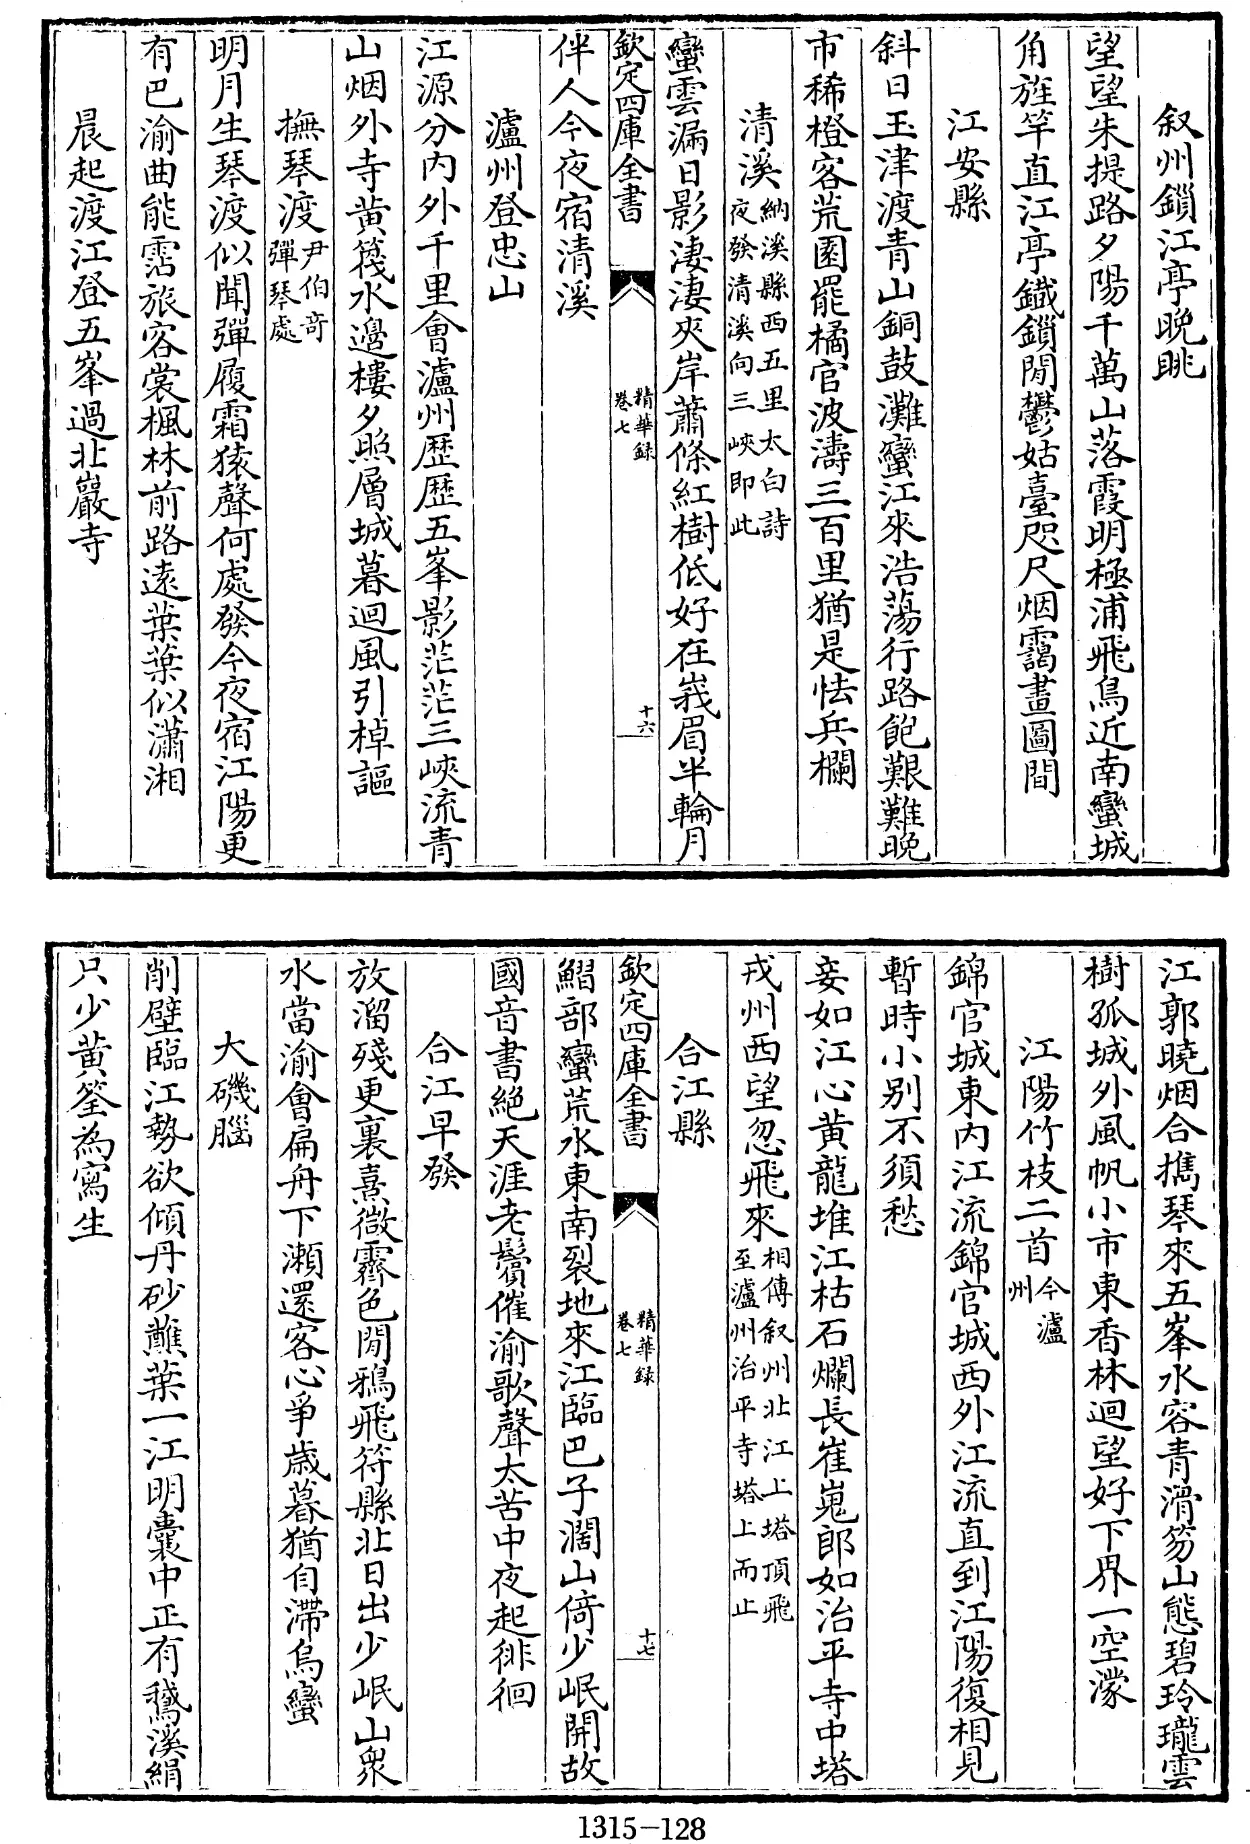 叙州鎖江亭晩眺
望望朱提路夕陽千萬山落霞明極浦飛鳥近南蠻城
角旌竿直江亭鐵鎖閒鬱姑臺咫尺烟靄畫圖間
江安縣
斜日玉津渡青山銅鼓灘蠻江來浩蕩行路飽艱難晩
市稀橙客荒園罷橘官波濤三百里猶是怯兵欄
清溪納溪縣西五里太白詩
夜發清溪向三峽即此
蠻雲漏日影淒淒夾岸蕭條紅樹低好在峩眉半輪月
欽定四庫全書
精華録
卷七
十六
伴人今夜宿清溪
瀘州登忠山
江源分内外千里會瀘州歴歴五峯影茫茫三峽流青
山烟外寺黄篾水邉樓夕照層城暮迴風引棹謳
撫琴渡尹伯竒
彈琴處
明月生琴渡似聞彈履霜猿聲何處發今夜宿江陽更
有巴渝曲能霑旅客裳楓林前路逺葉葉似瀟湘
晨起渡江登五峯過北巖寺
江郭曉烟合擕琴來五峯水容青滑笏山態碧玲瓏雲
樹孤城外風帆小市東香林迴望好下界一空濛
江陽竹枝二首今瀘
州
錦官城東内江流錦官城西外江流直到江陽復相見
暫時小别不須愁
妾如江心黄龍堆江枯石爛長崔嵬郎如治平寺中塔
戎州西望忽飛來相傳叙州北江上塔頂飛
至瀘州治平寺塔上而止
合江縣
欽定四庫全書
精華録
卷七
十七
鰼部蠻荒水東南裂地來江臨巴子濶山倚少岷開故
國音書絶天涯老鬢催渝歌聲太苦中夜起徘徊
合江早發
放溜殘更裏熹微霽色閒鴉飛符縣北日出少岷山衆
水當渝會扁舟下瀬還客心爭歳暮猶自滯烏蠻
大磯腦
削壁臨江勢欲傾丹砂蘸葉一江明囊中正有鵞溪絹
只少黄筌為寫生
1315-128